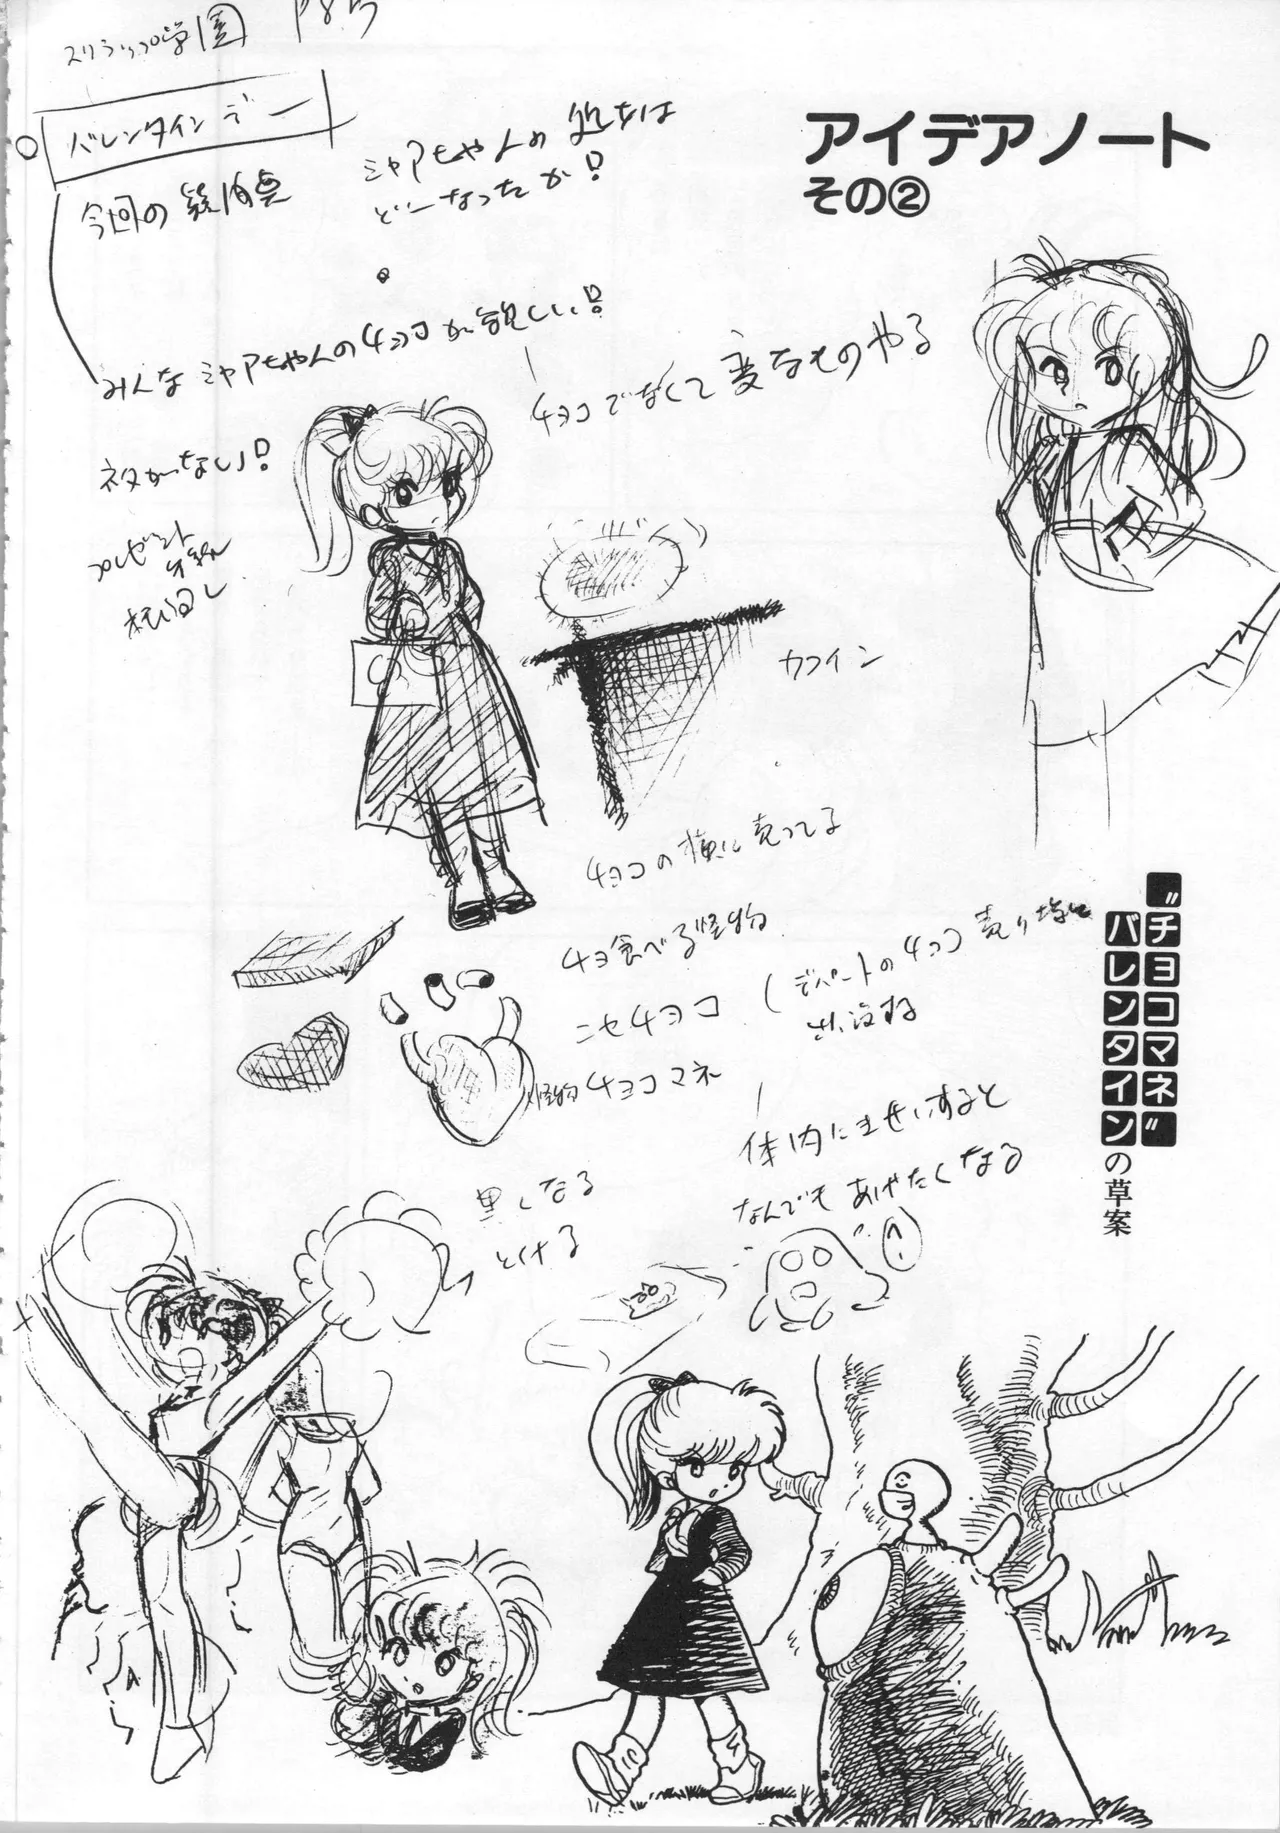 アイデアノート
その②
スクラップ学園
P85
バレンタインデー
今回の疑問点
ミャアちゃんの処女は
どーなったか!
みんなミャアちゃんの4ョコが欲しい!
チョコでなくて変なものやる
ネタがない!
プレゼント
カフイン
チョコの横に売ってる
チョ食べる怪物
ニセチョコ
(デパートのチョコ売り場に
出没する
怪物チョコマネ
体内にませいすると
なんでもあげたくなる
黒くなる
とける
"チョコマネ"
バレンタインの草案